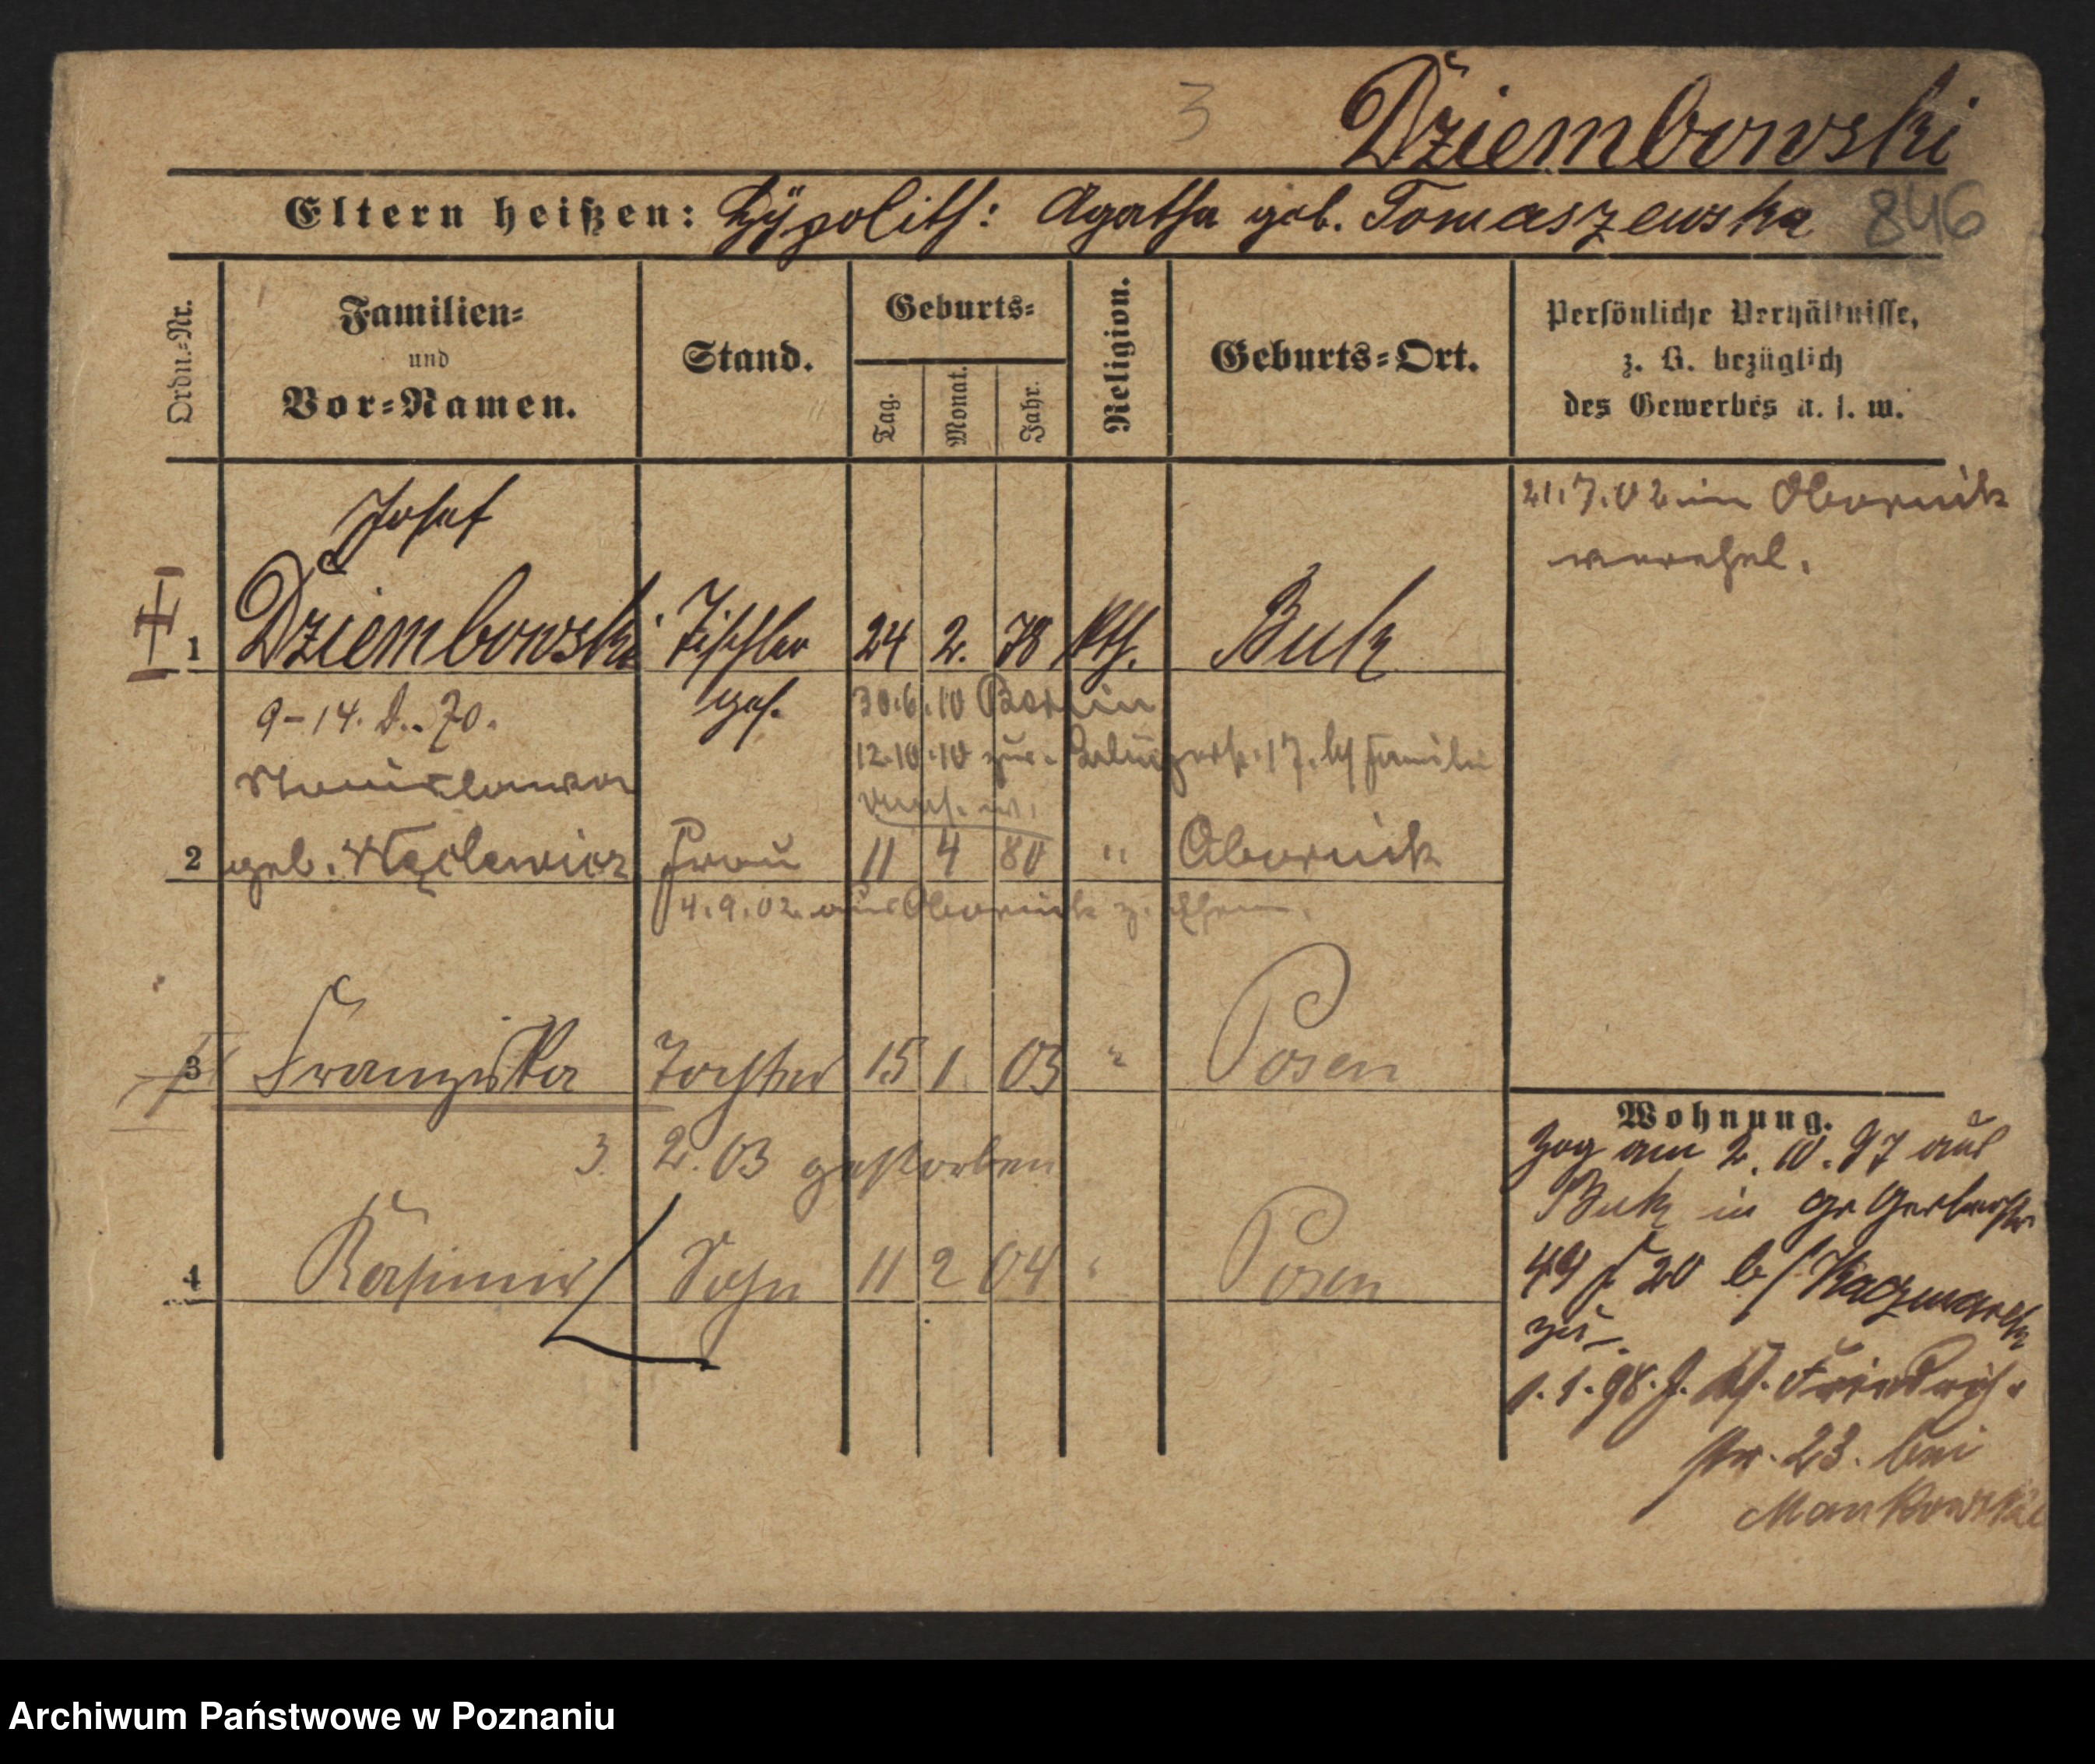 3 Dziembowski
Eltern heißen: Hÿpolith: Agatha geb. Tomaszewska 846
Ordn.-Nr.
Familien-
und
Vor-Namen.
Stand.
Geburts-
Tag.
Monat.
Jahr.
Religion.
Geburts-Ort.
Persönliche Verhältnisse,
z. B. bezüglich
des Gewerbes u. s. w.
21.7.02 in Obornik
verehel.
Josef
1 Dziembowski Tischler 24 2. 78 kth. Buk
9-14. D.. 70. ges. 30.6.10 Berlin
12.10.10 zur. 17. Familie
Stanislawa
2 geb. Węclewicz Frau 11 4 80 " Obornik
4.9.02 aus Obornik
3 Franziska Tochter 15 1 03 " Posen
3. 2. 03 gestorben
4 Kasimir Sohn 11 2 04 " Posen
Wohnung.
Zog am 2.10.97 aus
Buk in Gr Gerberstr
49 20 b/ Kaczmarek
zu.
1.1.98. Friedrich-
str. 23. bei
Mankowski
Archiwum Państwowe w Poznaniu